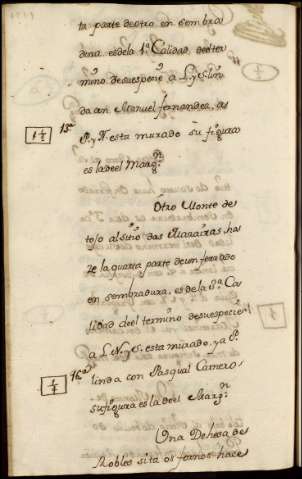 ta parte de otro en sembra
dura es de la 1.ª Calidad, del ter
mino de su especie a L. y S. lin
da con Manuel fernandez, a
P. y N. esta murado su figura
es la del Marg.n
15ª
1 1/2
Otro Monte de
tojo al sitio das ha
ze la quarta parte de un ferrado
en sembradura, es de la Ca
lidad del termino de su especie
a L. N. y S. esta murado, y a P.
linda con Pasqual Carnero
su figura es la del Marg.n
16ª
1/4
Una Dehesa de
Robles sita os fornos hace